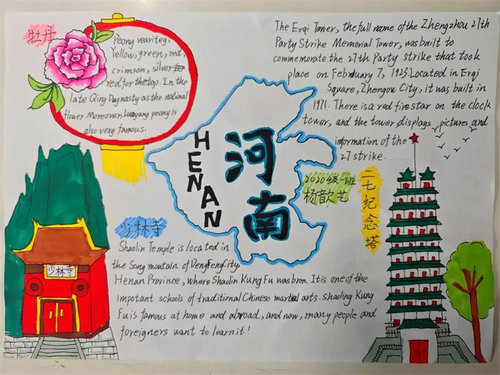 牡丹
Peony varieties,
Yellow, green, red,
crimson, silver
red for the top. In the
late Qing Daynasty as the national
flower. Moreover, Luoyang peony is
also very famous.
The Erqi Tower, the full name of the Zhengzhou 27th
Party Strike Memorial Tower, was built to
commemorate the 27th Party strike that took
place on February 7, 1925. Located in Erqi
Square, Zhengzou City, it was built in
1971. There is a red fire star on the clock
tower, and the tower displays pictures and
information of the
27 strike.
HENAN
河南
2020级一班
杨歆艺
二七纪念塔
少林寺
少林寺
Shaolin Temple is located in
the Song mountain of DengFeng City
Henan Province, where Shaolin Kung Fu was bron. It is one of the
impotant schools of traditional Chinese martial arts. Shaoling Kung
Fu is famous at home and abroad, and now, many people and
foreigners want to learn it!